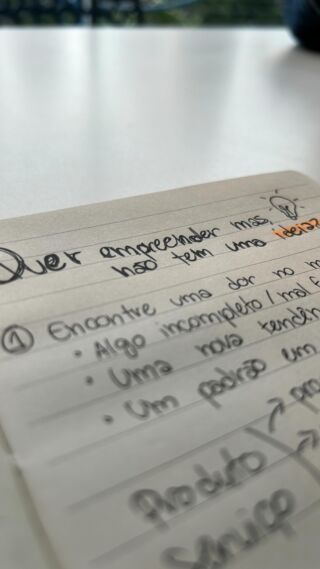 Quer empreender mas,
não tem uma ideia?
① Encontre uma dor no
• Algo incompleto / mal
• Uma nova
• Um padrão em
Produto
Serviço